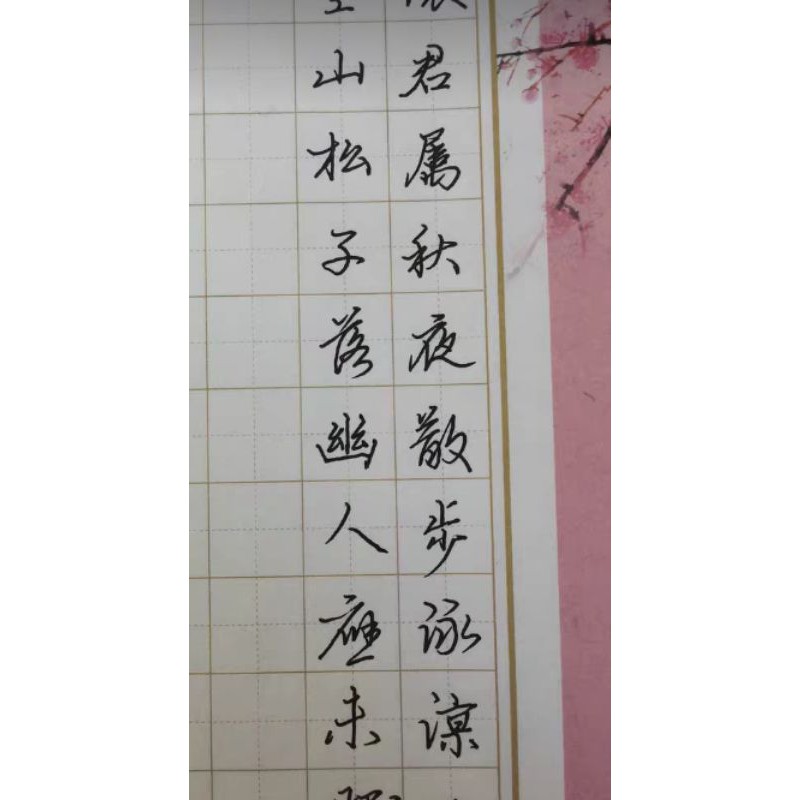 君属秋夜散步詠涼
山松子落幽人應未